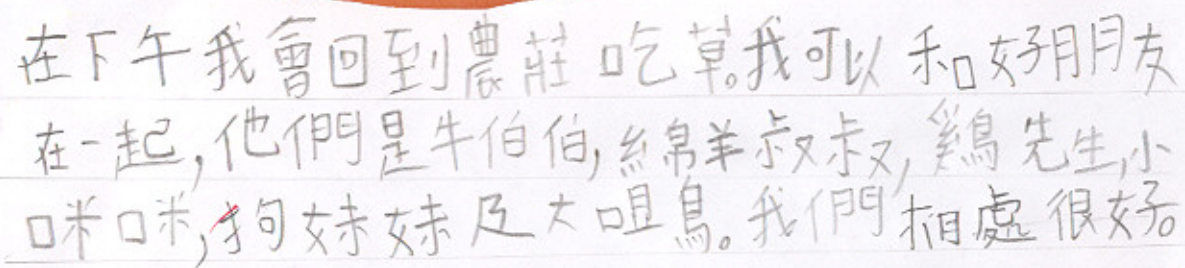 在下午我會回到農莊吃草。我可以和好朋友
在一起,他們是牛伯伯,綿羊叔叔,雞先生,小
咪咪,狗妹妹及大咀鳥。我們相處很好。